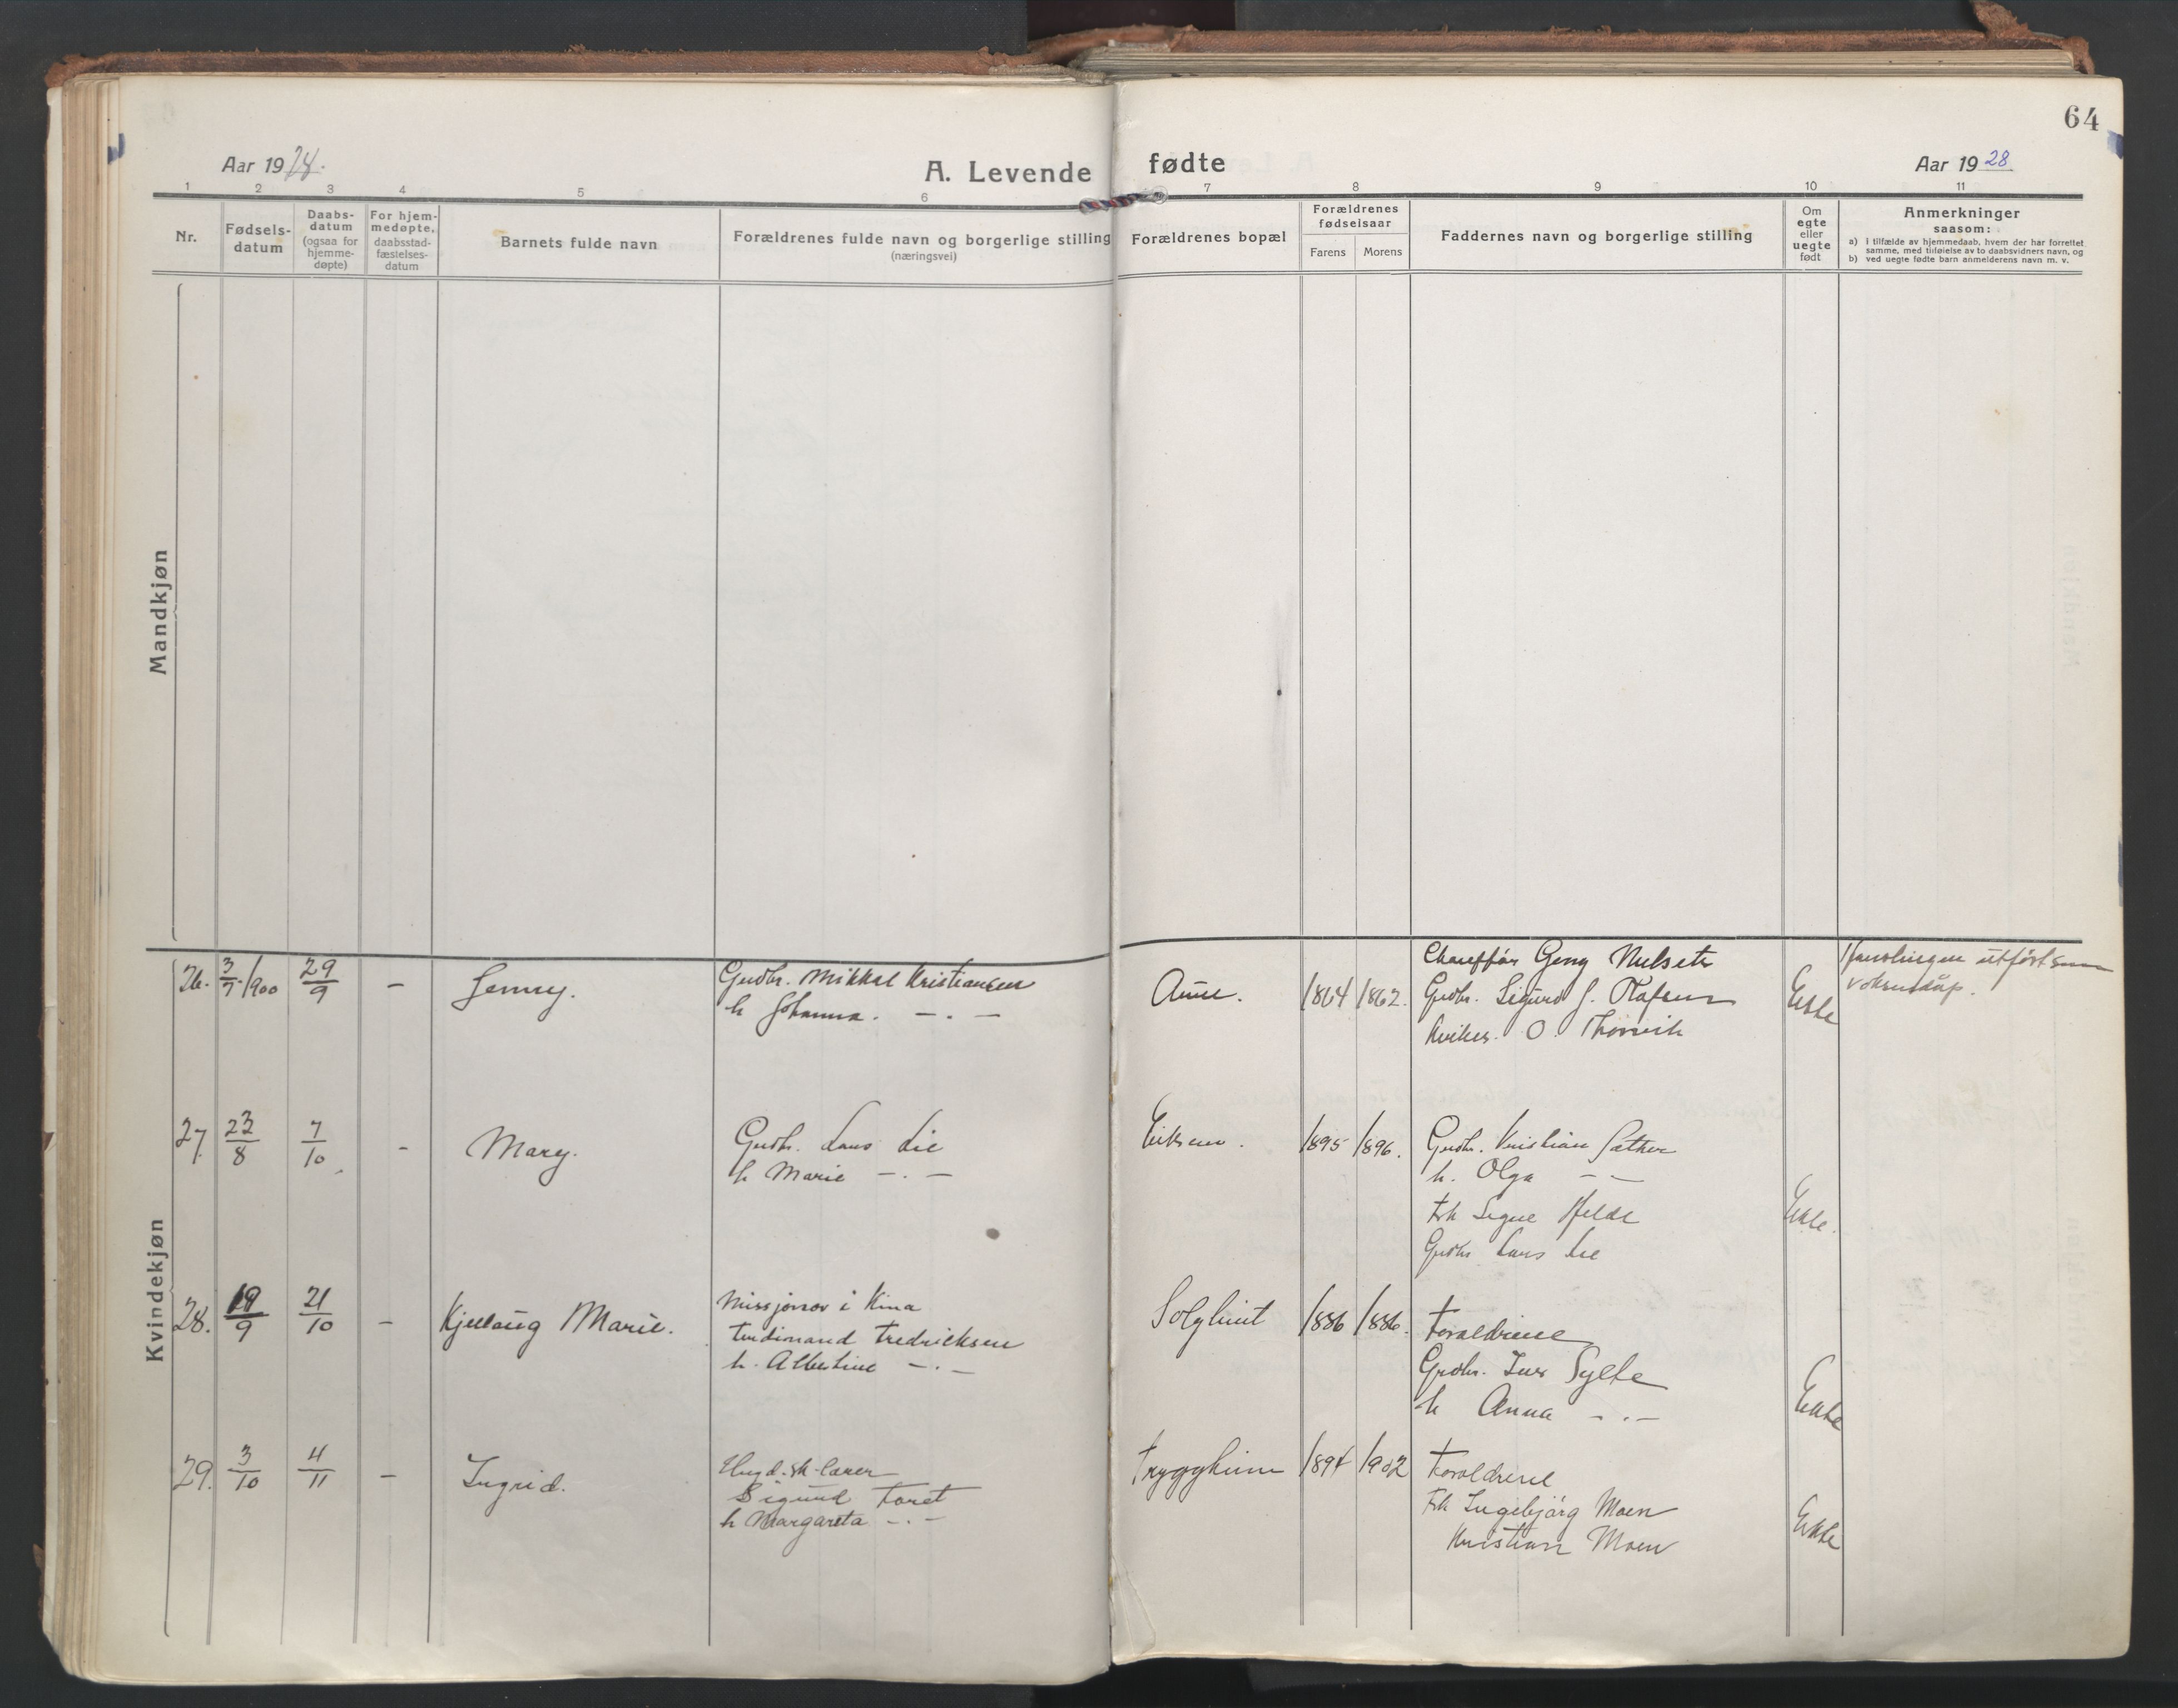 64
Aar 1928.
A. Levende fødte
Aar 1928
1 2 3 4 5 6 7 8 9 10 11
Nr.
Fødsels-
datum
Daabs-
datum
(ogsaa for
hjemme-
døpte)
For hjem-
medøpte,
daabsstad-
fæstelses-
datum
Barnets fulde navn
Forældrenes fulde navn og borgerlige stilling
(næringsvei)
Forældrenes bopæl
Forældrenes
fødselsaar
Farens Morens
Faddernes navn og borgerlige stilling
Om
egte
eller
uegte
født
Anmerkninger
saasom:
a) i tilfælde av hjemmedaab, hvem der har forrettet
samme, med tilføielse av to daabsvidners navn, og
b) ved uegte fødte barn anmelderens navn m. v.
Mandkjøn
Kvindekjøn
26. 3/7 1900 29/9 – Jenny.
Gardbr. Mikkal Kristiansen
h Johanna. –.–
Aune. 1864 1862.
Chauffør Georg Nulseth
Gardbr. Sigurd J. Olafsen
O. Thorvik
Ekte
Handlingen utført som
voksendåp.
27. 23/8 7/10 – Mary.
Gardbr. Lars Lie
h Marie –.–
1895 1896.
Gardbr. Kristian Sæther
h. Olga – –
Frk Signe Helde
Gardbr Lars Lie
Ekte.
28. 19/9 21/10 – Kjellaug Marie.
Missjonær i Kina
Ferdinand Fredriksen
h. Albertine –.–
Solglimt 1886 1886.
Foreldrene
Gardbr. Iver Sylte
h Anna –.–
Ekte
29. 3/10 4/11 – Ingrid.
Ungd.sk.lærer
Sigurd Foret
h Margareta –.–
Tryggheim 1894 1902
Foreldrene
Frk Ingebjørg Moen
Kristian Moen
Ekte